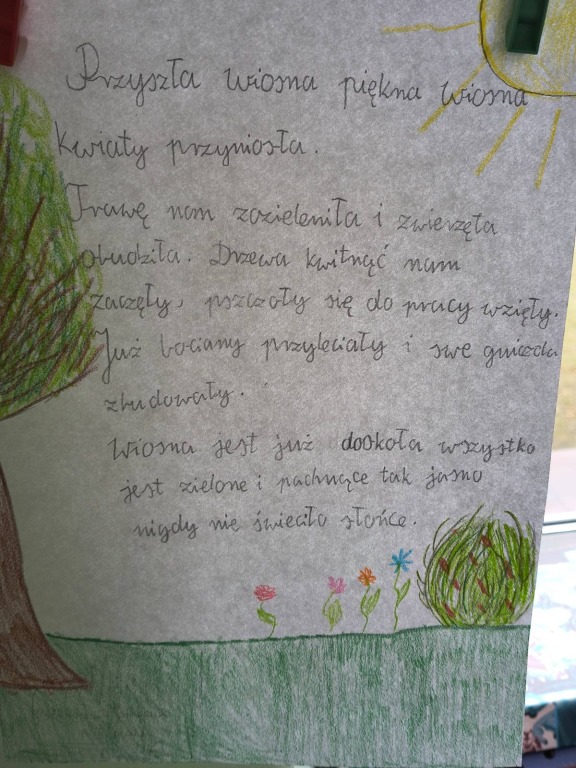 Przyszła wiosna piękna wiosna
kwiaty przyniosła.
Trawę nam zazieleniła i zwierzęta
obudziła. Drzewa kwitnąć nam
zaczęły, pszczoły się do pracy wzięły.
Już bociany przyleciały i swe gniazda
zbudowały.
Wiosna jest już dookoła wszystko
jest zielone i pachnące tak jasno
nigdy nie świeciło słońce.